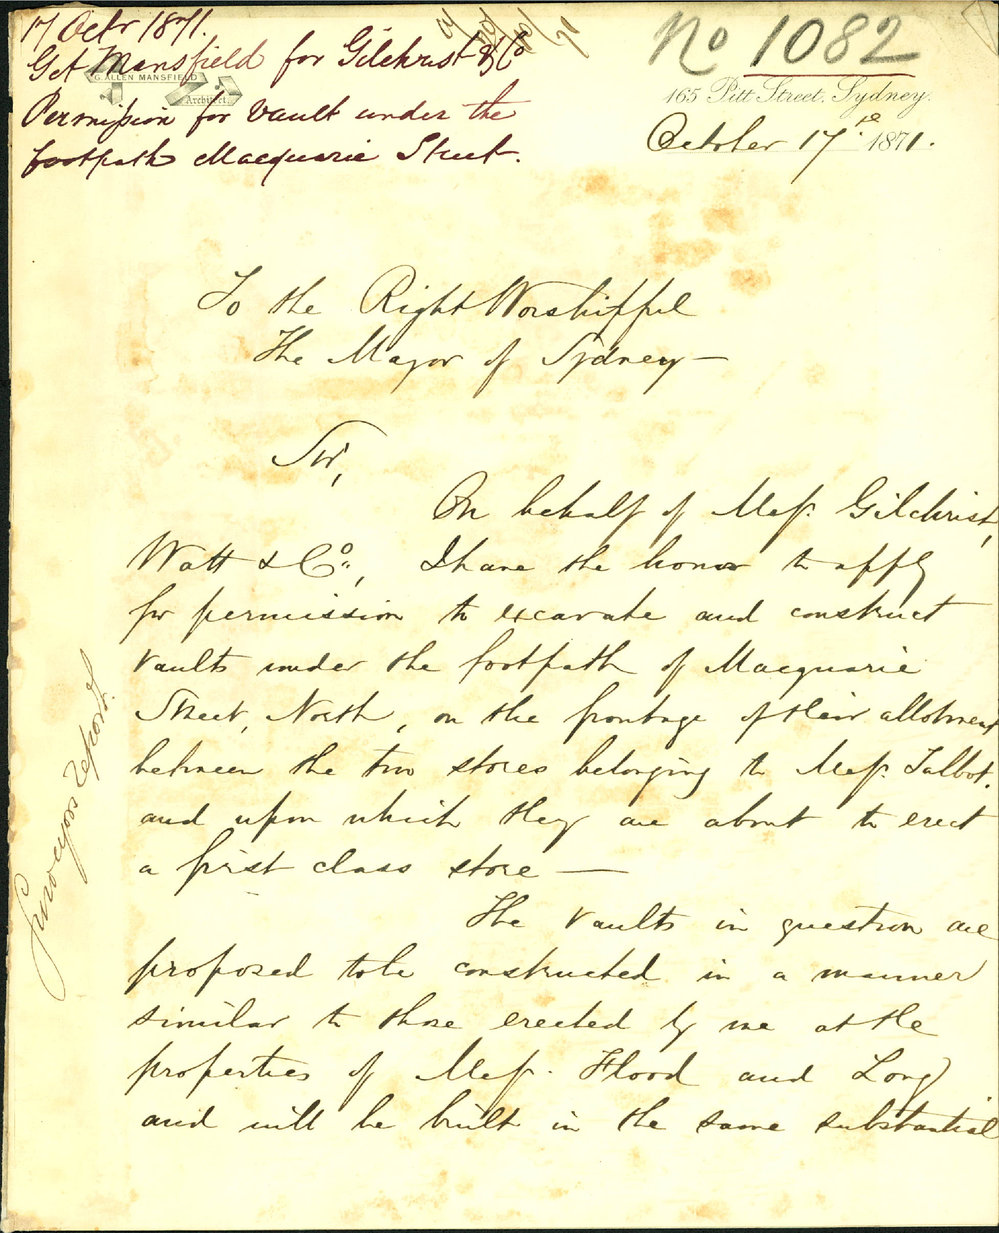 17 Octr 1871.
G A Mansfield for Gilchrist & Co
Permission for Vault under the
footpath Macquarie Street.
G. ALLEN MANSFIELD
Architect.
No 1082
165 Pitt Street, Sydney.
October 17th 1871.
To the Right Worshipful
The Mayor of Sydney —
Sir,
On behalf of Mess. Gilchrist,
Watt & Co., I have the honor to apply
for permission to excavate and construct
vaults under the footpath of Macquarie
Street, North, on the frontage of their allotment
between the two stores belonging to Mess. Talbot.
and upon which they are about to erect
a first class store —
The vaults in question are
proposed to be constructed in a manner
similar to those erected by me at the
properties of Mess. Flood and Long
and will be built in the same substantial
Surveyors report.